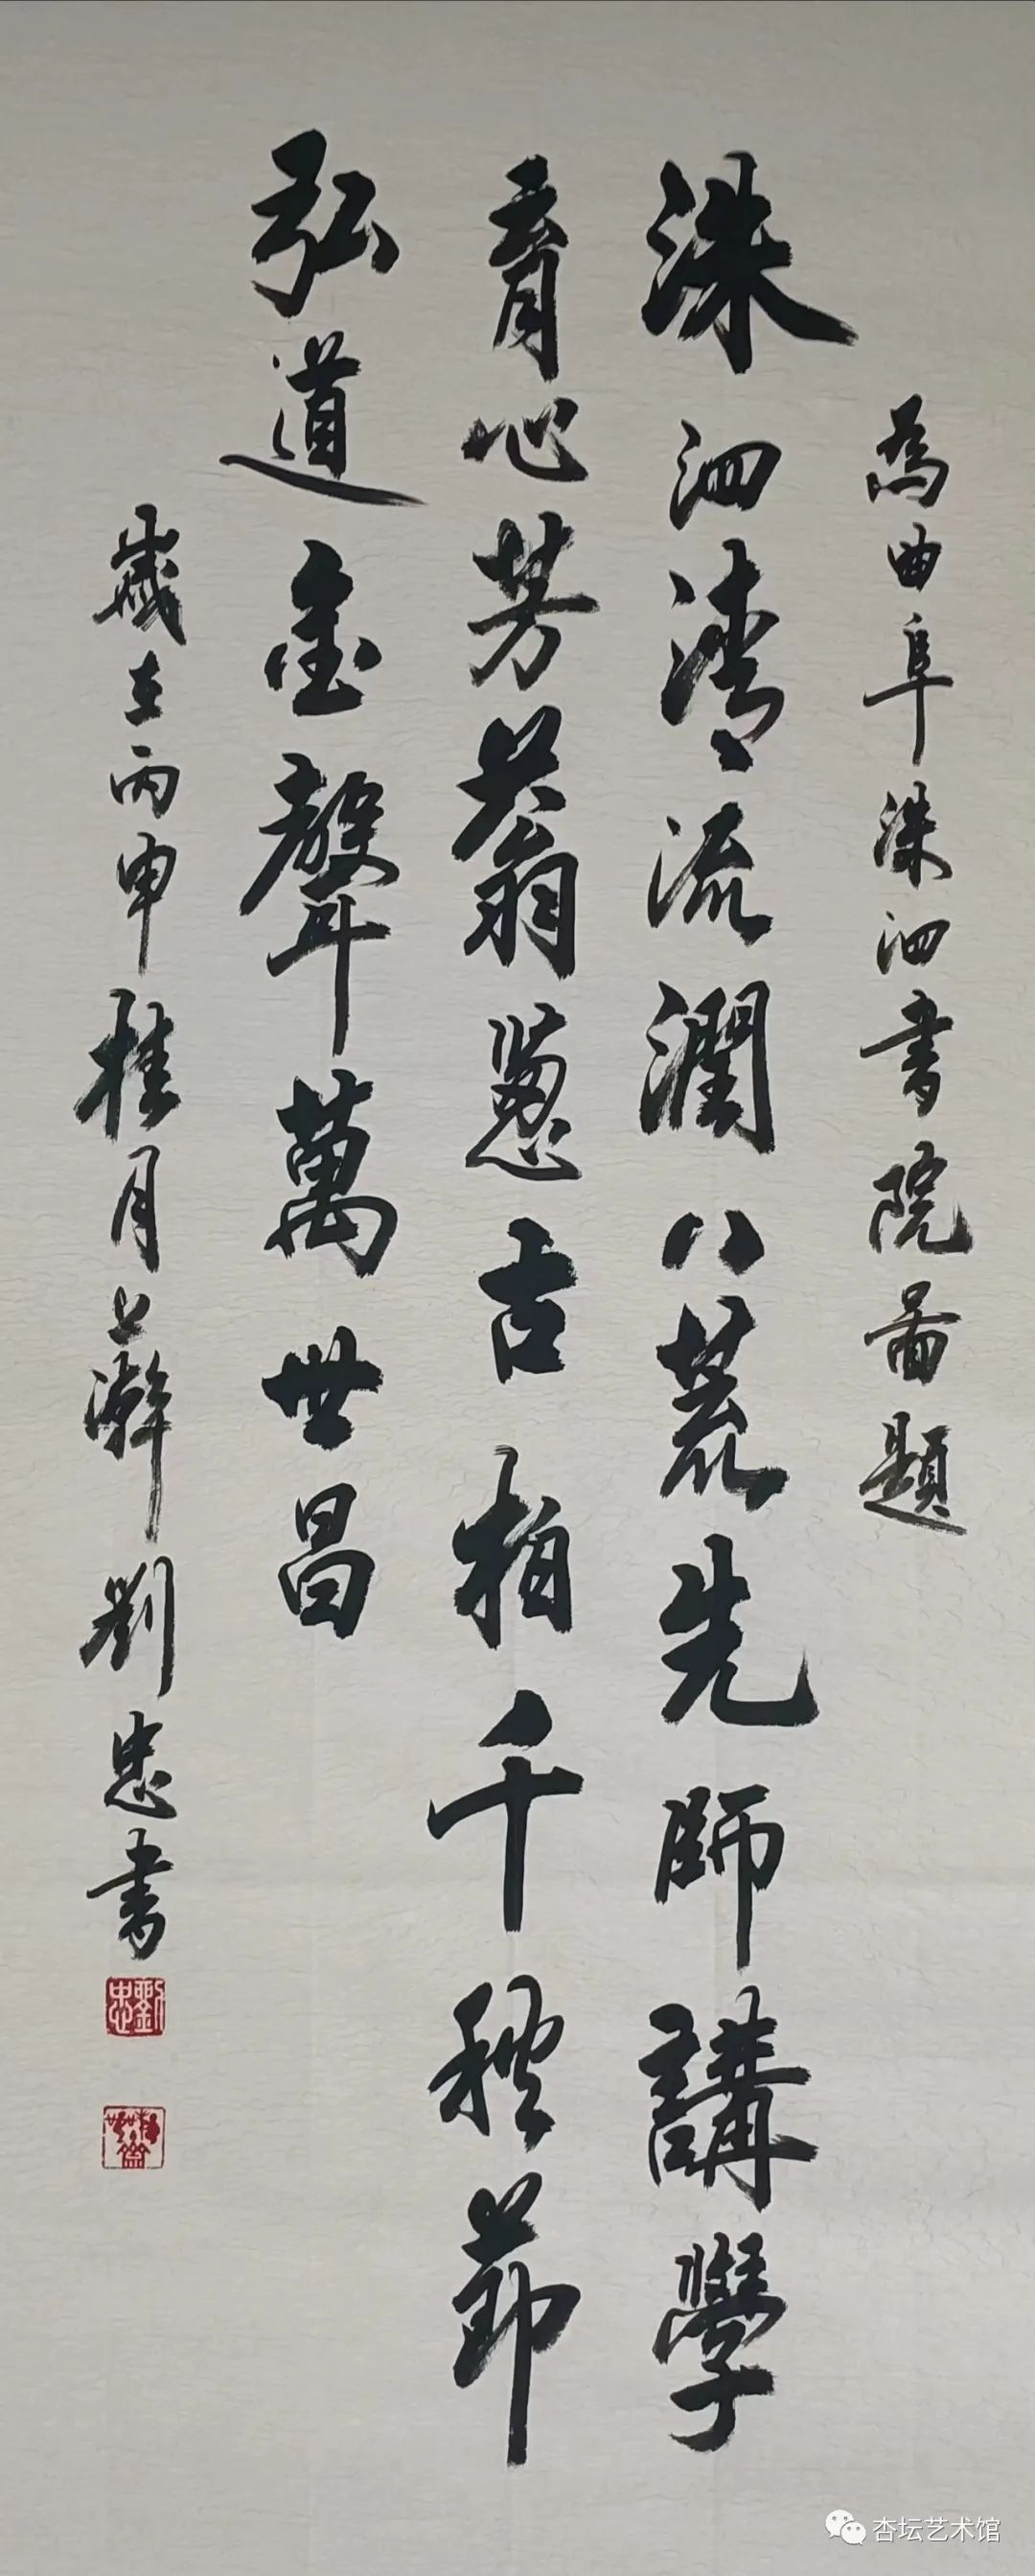 為曲阜洙泗書院畫題
洙泗清流潤八荒先師講學
育心芳蓊蔥古柏千秋節
弘道金聲萬世昌
歲在丙申桂月上澣劉忠書
劉忠
杏坛艺术馆